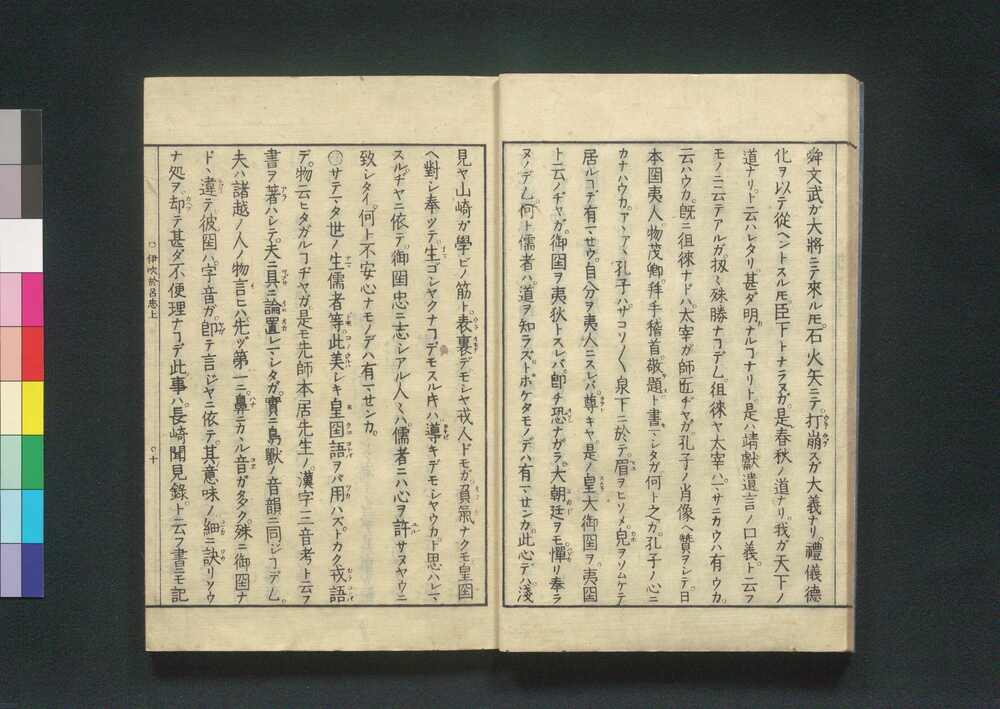 舜文武ガ大將ニテ來ルモ石火矢ニテ打崩スガ大義ナリ。禮儀德
化ヲ以テ從ヘントスルモ臣下トナラヌガ是春秋ノ道ナリ。我ガ天下ノ
道ナリト云ハレタリ甚ダ明ナルコナリト是ハ靖獻遺言ノ口義ト云フ
モノニ云テアルガ扨々殊勝ナコデム徂徠ヤ太宰ハマサニカウハ有ウカ。
云ハウカ。既ニ徂徠ナドハ太宰ガ師匠ヂヤガ孔子ノ肖像ヘ贊ヲシテ。日
本国夷人物茂卿拜手稽首敬題ト書マシタガ何ト之カ。孔子ノ心ニ
カナハウカ。ア丶ア丶孔子ハザコソ〱泉下ニ於テ眉ヲヒソメ皃ヲソムケテ
居ルコデ有マセウ。自分ヲ夷人ニスレバ尊キヤ是ノ皇大御国ヲ夷国
ト云ノヂヤガ。御国ヲ夷狄トスレバ即チ恐ナガラ。大朝廷ヲモ憚リ奉ラ
ヌノデム。何ト儒者ハ道ヲ知ラズトボケタモノデハ有マセンカ。此心デハ淺
見ヤ山崎ガ學ビノ筋ト表裏デモシヤ戎人ドモガ負氣ナクモ皇国
ヘ對シ奉ツテ生ゴシヤクナコデモスルキハ導キデモシヤウカト思ハレマ
スルヂヤニ依テ御国忠ニ志シアル人々ハ儒者ニハ心ヲ許サヌヤウニ
致シタイ。何ト不安心ナモノデハ有マセンカ。
サテマタ世ノ生儒者等此美シキ皇国語ヲバ用ハズトカク戎語
デ物云ヒタガルコヂヤガ是モ先師本居先生ノ漢字三音考ト云フ
書ヲ著ハシテ。夫ニ具ニ論置レマシタガ。實ニ鳥獸ノ音韻ニ同ジコデム。
夫ハ諸越ノ人ノ物言ヒハ先ヅ第一ニ鼻ニカヽル音ガ多ク。殊ニ御国ナ
ドヽ違テ彼国ハ字音ガ即テ言ジヤニ依テ。其意味ノ細ニ訣リソウ
ナ処ヲ却テ甚ダ不便理ナコデ此事ハ長崎聞見錄ト云フ書ニモ記
伊吹於呂志上
十